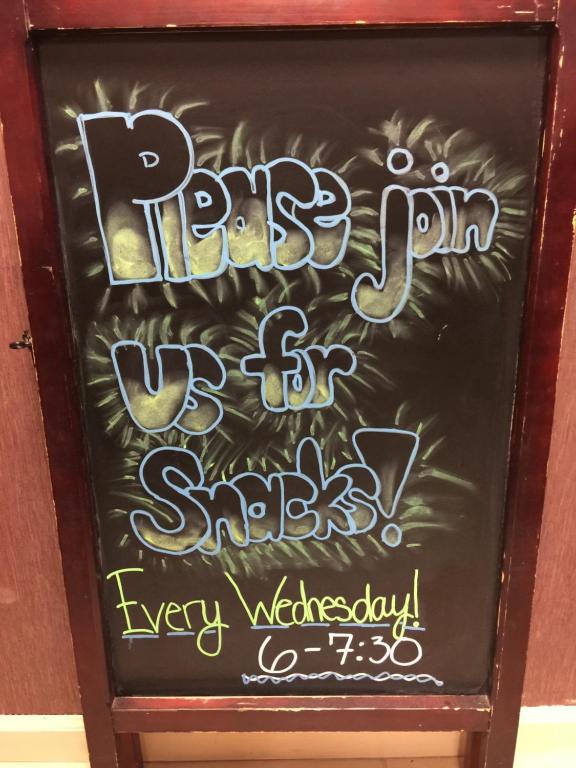 Please join
us for
Snacks!
Every Wednesday!
6-7:30